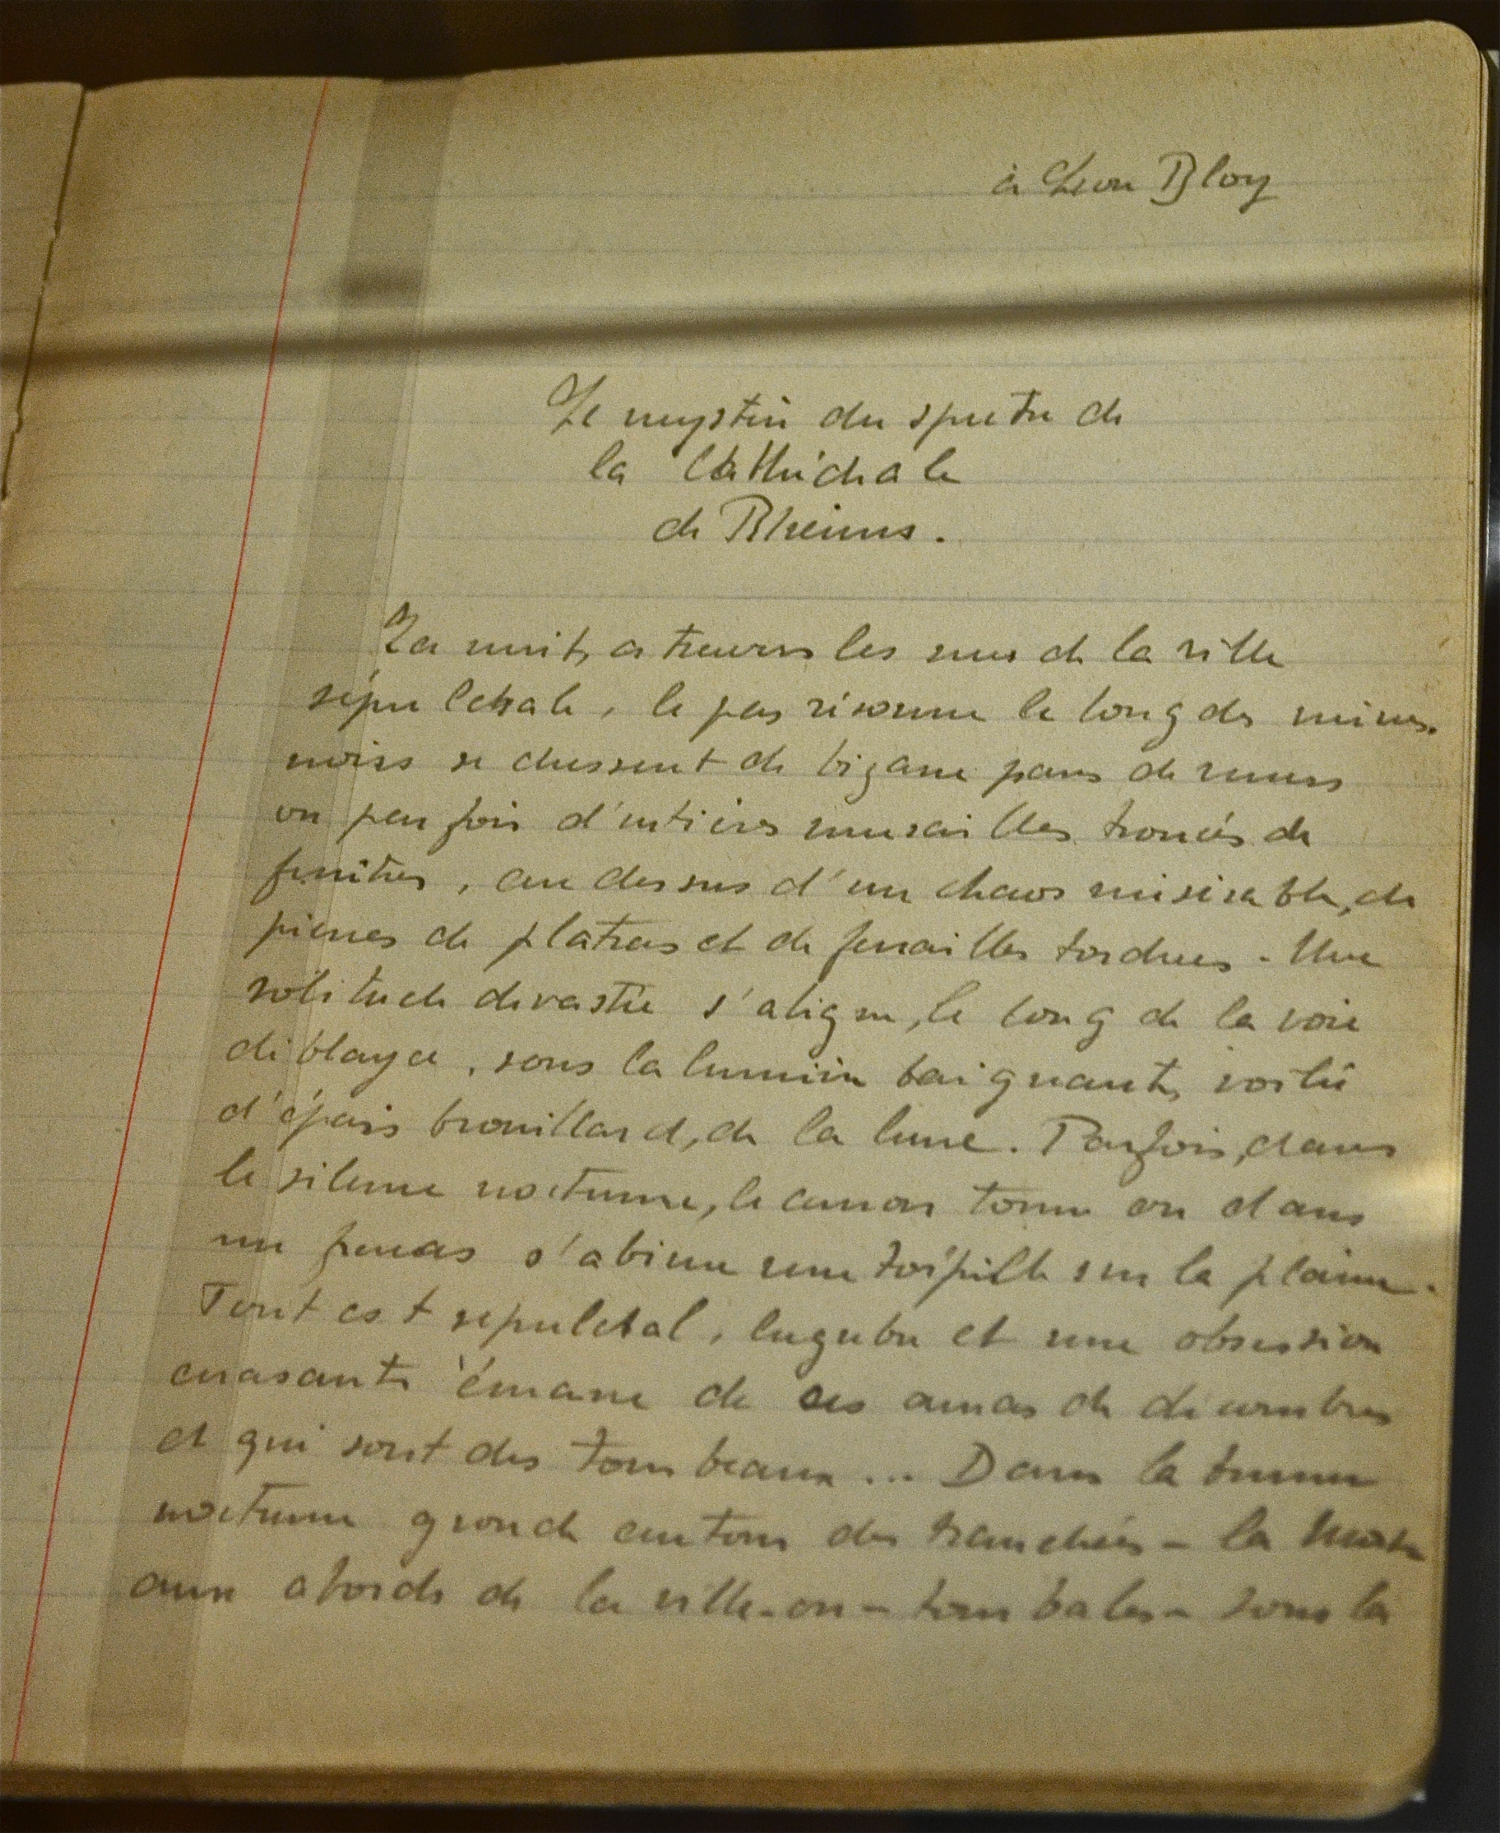 à Léon Bloy
Le mystère du spectre de
la Cathédrale
de Rheims.
La nuit, a travers les rues de la ville
sépulchrale, le pas résonne le long des ruines.
noirs se dressent de bizarre pans de murs
ou parfois d'entières murailles trouées de
fenêtres, au dessus d'un chaos misérable, de
pierres de platras et de ferrailles tordues - Une
solitude dévastée s'aligne, le long de la voie
déblayée, sous la lumière baignante, voilée
d'épais brouillard, de la lune. Parfois, dans
le silence nocturne, le canon tonne ou dans
un fracas s'abime une torpille sur la plaine.
Tout est sepulcral, lugubre et une obsession
écrasante émane de ces amas de décombres
et qui sont des tombeaux... Dans la brume
nocturne gronde autour des tranchées - la Mort
aux abords de la ville - on - tombales - sous la